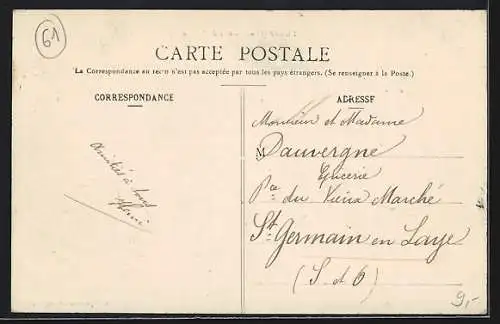 61
CARTE POSTALE
La Correspondance au recto n'est pas acceptée par tous les pays étrangers. (Se renseigner à la Poste.)
CORRESPONDANCE
ADRESSE
Amitiés à tous
Monsieur et Madame
M Dauvergne
Epicerie
Pce du Vieux Marché
St Germain en Laye
(S et O)
9,-